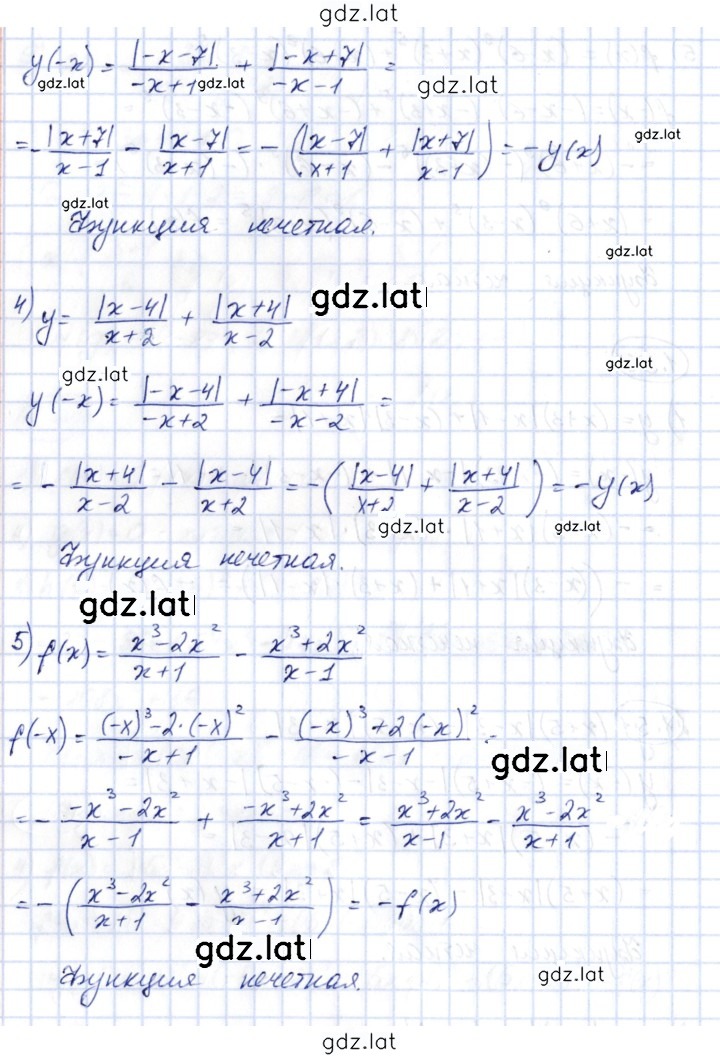 gdz.lat
y(-x) = |-x-7|/(-x+1) + |-x+7|/(-x-1) =
gdz.lat gdz.lat gdz.lat
= -|x+7|/(x-1) - |x-7|/(x+1) = -(|x-7|/(x+1) + |x+7|/(x-1)) = -y(x)
gdz.lat
gdz.lat
Функция нечетная.
gdz.lat
4) y = |x-4|/(x+2) + |x+4|/(x-2)
gdz.lat
gdz.lat
gdz.lat
y(-x) = |-x-4|/(-x+2) + |-x+4|/(-x-2) =
= - |x+4|/(x-2) - |x-4|/(x+2) = -(|x-4|/(x+2) + |x+4|/(x-2)) = -y(x)
gdz.lat gdz.lat
Функция нечетная.
gdz.lat
5) f(x) = (x³-2x²)/(x+1) - (x³+2x²)/(x-1)
f(-x) = ((-x)³-2·(-x)²)/(-x+1) - ((-x)³+2(-x)²)/(-x-1) =
gdz.lat
= - (-x³-2x²)/(x-1) + (-x³+2x²)/(x+1) = (x³+2x²)/(x-1) - (x³-2x²)/(x+1)
= -((x³-2x²)/(x+1) - (x³+2x²)/(x-1)) = -f(x)
gdz.lat
Функция нечетная.
gdz.lat
gdz.lat